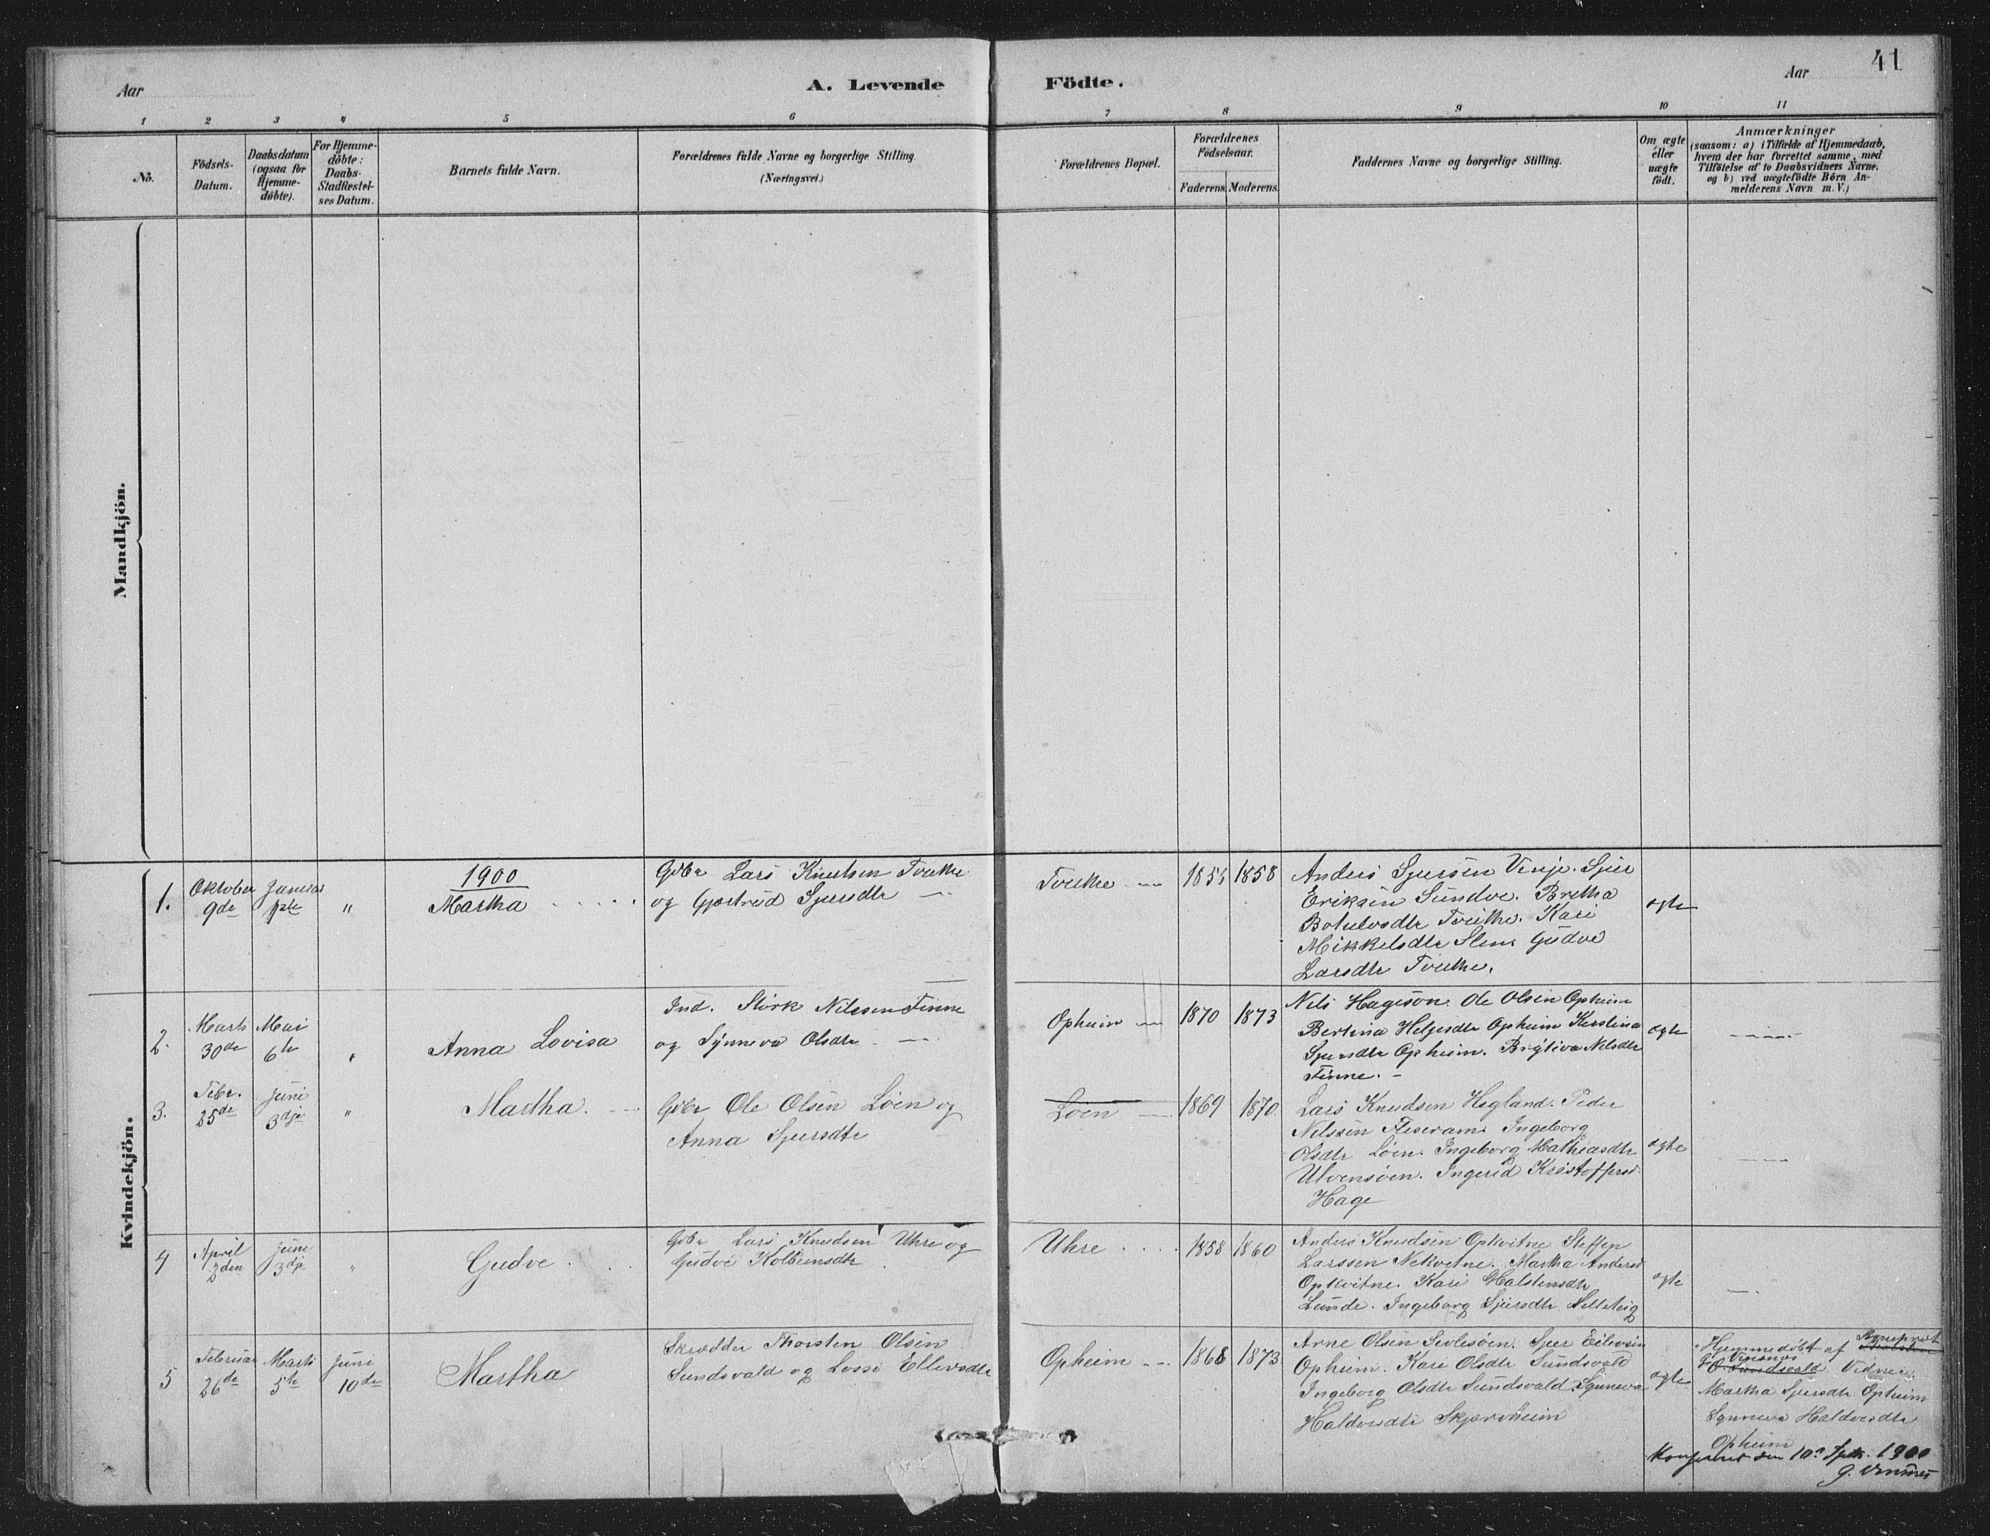 41
Aar
A. Levende
Födte.
Aar
1 2 3 4 5 6 7 8 9 10 11
No.
Födsels-
Datum.
Daabsdatum
(ogsaa for
Hjemme-
döbte).
For Hjemme-
döbte:
Daabs-
Stadfæstel-
ses Datum.
Barnets fulde Navn.
Forældrenes fulde Navne og borgerlige Stilling.
(Næringsvei.)
Forældrenes Bopæl.
Forældrenes
Födselsaar.
Faderens. Moderens.
Faddernes Navne og borgerlige Stilling.
Om ægte
eller
uægte
födt.
Anmærkninger
(saasom: a) i Tilfælde af Hjemmedaab,
hvem der har forrettet samme, med
Tilföielse af to Daabsvidners Navne.
og b) ved uægtefödte Börn An-
melderens Navn m. V.)
Mandkjön.
Kvindekjön.
1.
Oktober
9de
Januar
1ste
"
1900
Martha
Gbr Lars Knutsen Tvethe
og Gjertrud Sjursdtr
Tvethe
1858
Anders Sjursen Vinje. Sjur
Eriksen Sundve. Bretha
Botulvsdtr Tvethe. Kari
Mikkelsdtr Gudve
Larsdtr Tvethe.
ægte
2.
Marts
30de
Mai
6te
"
Anna Lovisa
Ind. Störk Nilssen Finne
og Synneva Olsdtr
Opheim
1870
1873
Nils Hageson. Ole Olsen Opheim
Bertina Helgesdtr Opheim Kristina
Sjursdtr Opheim. Brytiva Nilsdtr
Finne.
ægte
3.
Febr.
25de
Juni
3dje
"
Martha.
Gbr Ole Olsen Löen og
Anna Sjursdtr
Löen
1869
1870.
Lars Knudsen Hegland. Peder
Nilssen Ingeborg
Olsdtr Löen. Ingeborg Mathiasdtr
Ulvensöen. Ingerid Kristoffersd.
Hage
ægte
4
April
2den
Juni
3dje
"
Gudve
Gbr Lars Knudsen Uhre og
Gudve Kolbensdtr
Uhre
1858
1860
Anders Knudsen Opkvitne Steffen
Larssen Nekvitne. Martha Andersd
Opkvitne. Kari Halstensdtr
Lunde. Ingeborg Sjursdtr
ægte
5
Februar
26de
Marts
5te
Juni
10de
Martha
Skrædder Thorsten Olsen
Sundsvald og Ellevsdtr
Opheim
1868
1873
Arne Olsen Sjur Eilevsen
Opheim. Kari Olsdtr Sundsvald
Ingeborg Olsdtr Sundsvald. Synneva
Haldorsdtr Skjerveheim
ægte
Hjemmedöbt af
Sundsvald Vidner
Martha Sjursdtr Opheim
Synneva Haldorsdtr
Opheim
den 10de Sptr. 1900